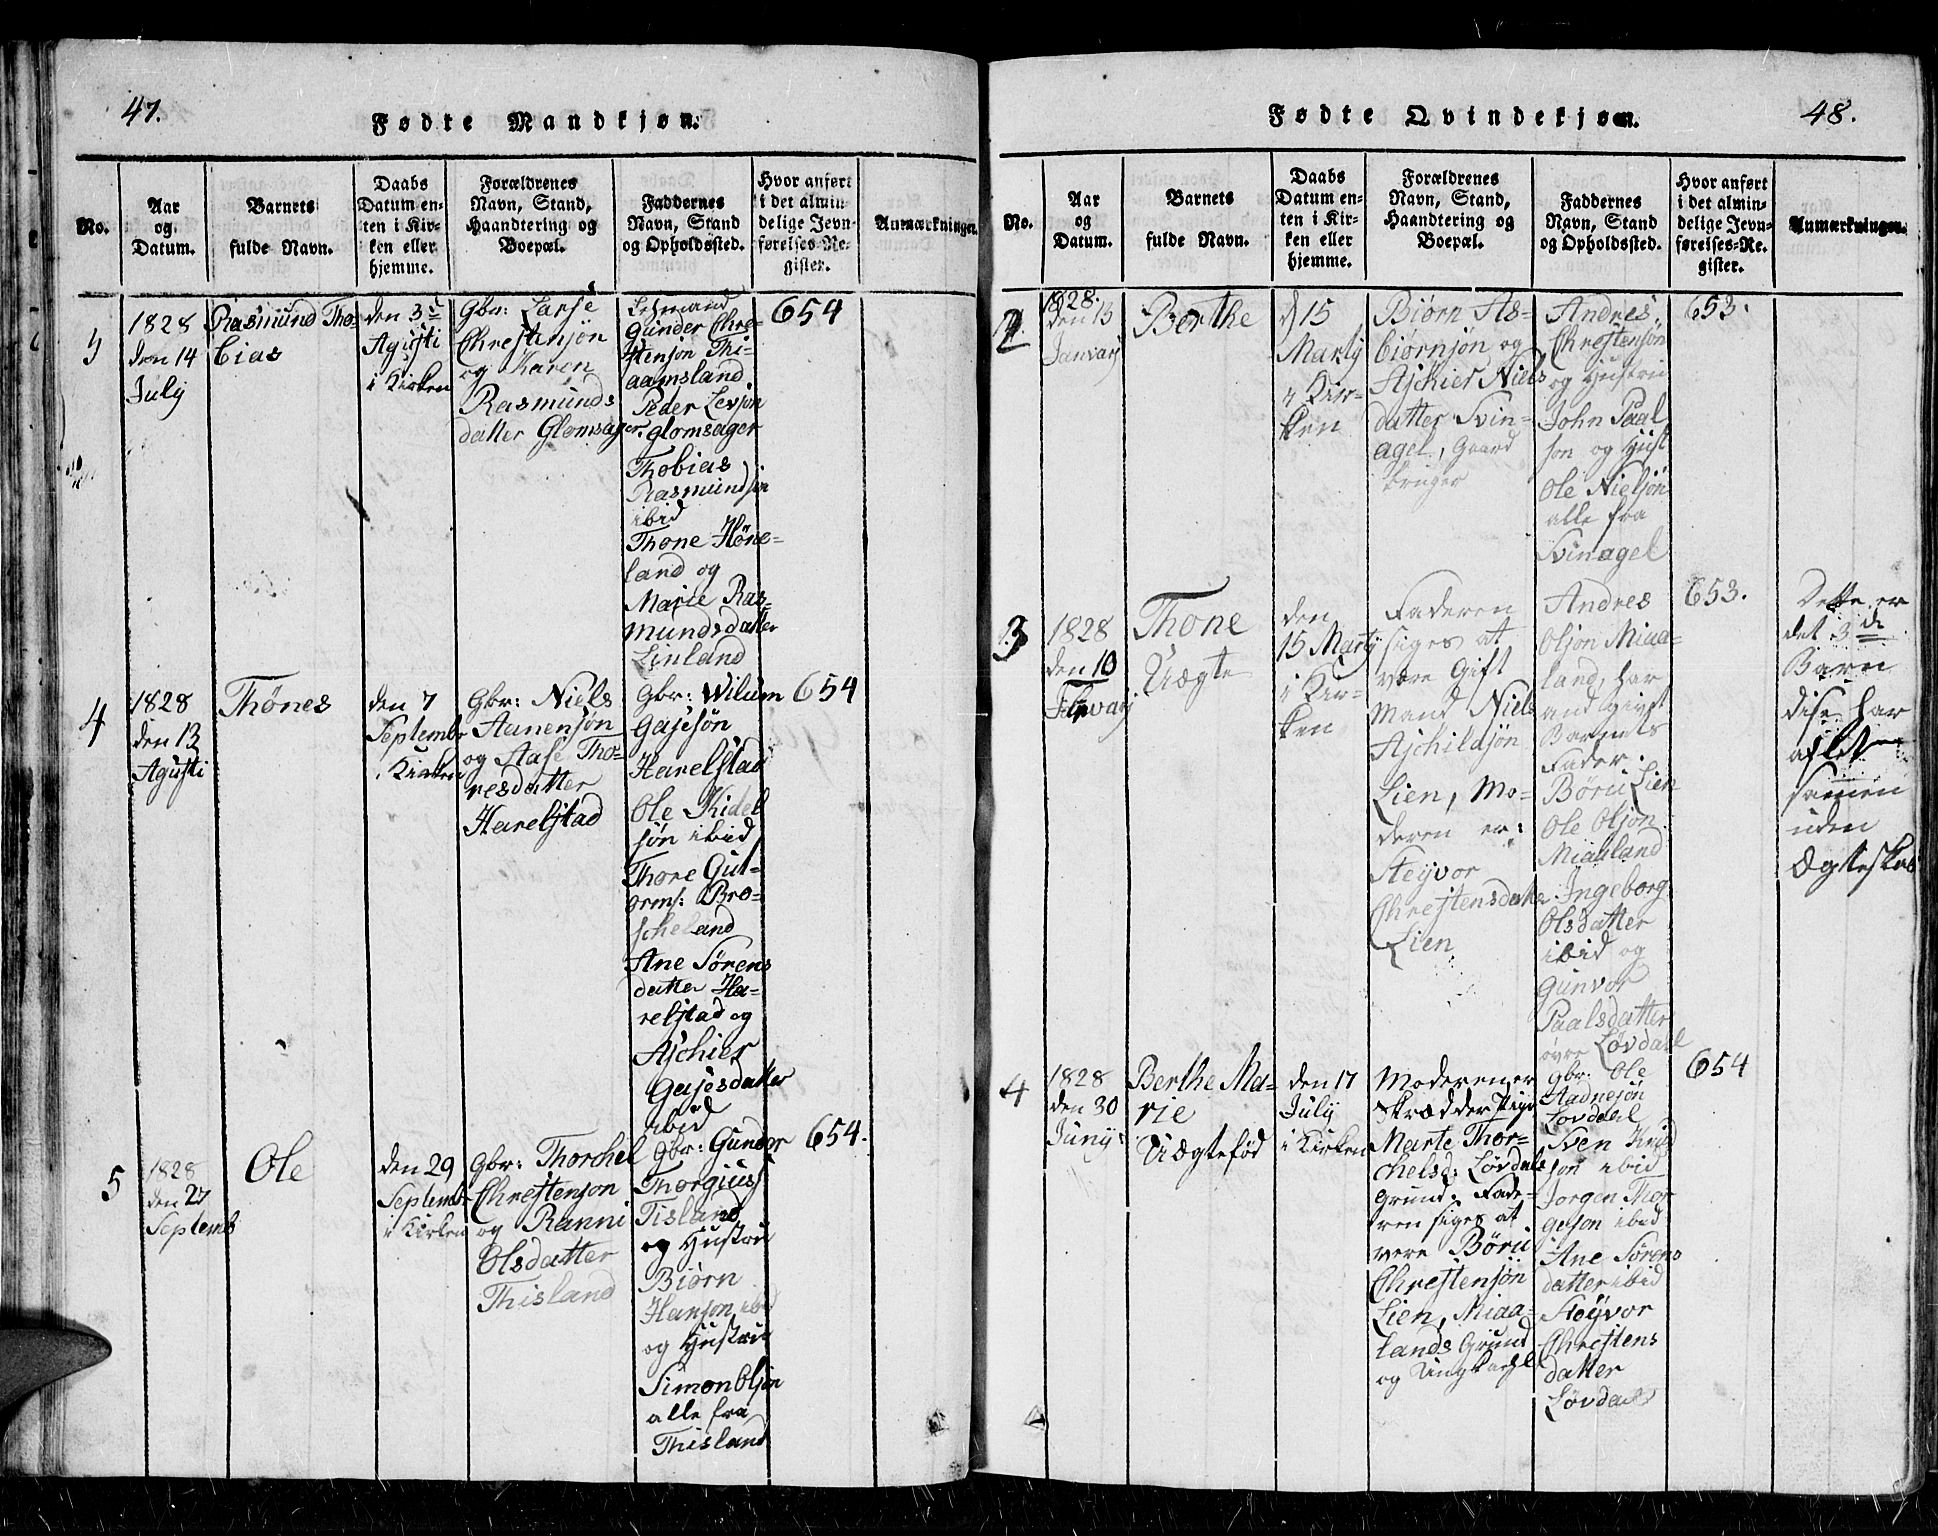 47.
Fødte Mandkjøn.
No.
Aar
og
Datum.
Barnets
fulde Navn.
Daabs
Datum en-
ten i Kir-
ken eller
hjemme.
Forældrenes
Navn, Stand,
Haandtering og
Boepæl.
Faddernes
Navn, Stand
og Opholdssted.
Hvor anført
i det almin-
delige Jevn-
førelses-Re-
gister.
Anmærkninger.
3
1828
den 14
July
Rasmund Tho-
bias
den 3d
Agusti
i Kirken
Gbr: Larse
Chrestensøn
og Karen
Rasmunds
datter Glomsager
Lehmand
Gunder Chre-
stensøn Thi-
aamsland
Peder Levson
glomsager
Thobias
Rasmundsøn
ibid
Thone Høne-
land og
Marie Ras-
mundsdatter
Linland
654
4
1828
den 13
Agusti
Thønes
den 7
Septembr
i Kirken
Gbr: Niels
Aanensøn
og Aase Tho-
resdatter
Harelstad
Gbr: Wilum
Gasesøn
Harelstad
Ole Kidel
søn ibid
Thore Gut-
orms: Bro-
scheland
Ane Sørens
datter Ha-
relstad og
Aschier
Gasesdatter
ibid
654
5
1828
den 27
Septemb
Ole
den 29
Septemb
i Kirken
Gbr: Thorchel
Chrestenson
og Ranni
Olsdatter
Thisland
Gbr: Gunder
Thorgiuss
Tisland
og Hustrue
Biørn
Hanson ibid
og Hustrue
Simon Olsøn
alle fra
Thisland
654.
48.
Fødte Qvindekjøn.
No.
Aar
og
Datum.
Barnets
fulde Navn.
Daabs
Datum en-
ten i Kir-
ken eller
hjemme.
Forældrenes
Navn, Stand,
Haandtering og
Boepæl.
Faddernes
Navn, Stand
og Opholdssted.
Hvor anført
i det almin-
delige Jevn-
førelses-Re-
gister.
Anmærkninger.
2
1828.
den 13
Januarj
Berthe
d 15
Martj
i Kir-
ken
Biørn As-
biørnsøn og
Aschier Niels
datter Svin-
agel, Gaard
bruger
Andres
Chrestensøn
og Hustrue
John Paal
søn og Hust
Ole Nielsøn
alle fra
Svinagel
653.
3
1828
den 10
Febrvarj
Thone
Uægte
den
15 Martj
i Kir-
ken
Faderen
siges at
være Gift
Mand Niels
Aschildsøn
Lien, Mo-
deren er:
Steyvor
Chrestensdatter
Lien
Andres
Olsøn Miaa-
land, har
andgivet
Barnets
Fader.
Børu Lien
Ole Olsøn
Miauland
Ingeborg
Olsdatter
ibid og
Gunvor
Paalsdatter
øvre Løvdael
653.
Dette er
det 3de
Barn
dise har
aflet
samen
uden
Ægteskab
4
1828
den 30
Junij
Berthe Ma-
rie
Uægtefød
den 17
July
i Kirken
Moderen er
Skrædder Pige
Marte Thor-
chelsd: Løvdals
grund. Fade-
ren siges at
vere Børu
Chrestensøn
Lien, Miaa-
lands Grund
og Ungkarl
Gbr: Ole
Aadnesøn
Lovdael
Sven Knud
søn ibid
Jorgen Thor
geson ibid
Ane Sørens
datter ibid
Støyvor
Chrestens
datter
Løvdael
654